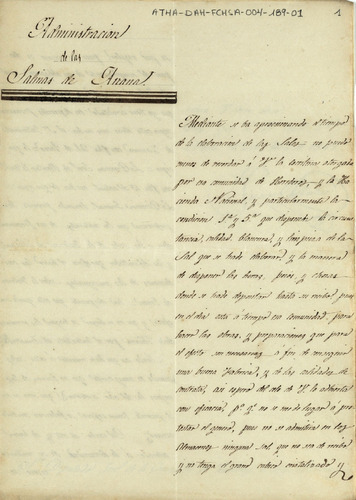 ATHA-DAH-FCHSA-004-189-01
1
Administracion
de las
Salinas de Añana
Mediante se ha aproximando el tiempo
de la elaboracion de las Sales no puedo
menos de recordar á V. la escritura otorgada
por esa comunidad de Herederos, y la Ha-
cienda Nacional, y particularmente la
condicion 1ª y 5ª que dispone la circuns-
tancia, calidad, blancura, y limpieza de la
Sal que se ha de elaborar, y la manera
de disponer las heras, pozos, y chozas
donde se ha de depositar hasta su recibo; pues
en el dia esta á tiempo esa comunidad, para
hacer las obras, y preparaciones que para
el efecto son necesarias á fin de conseguir
una buena fabrica, y de las calidades de
contrata, asi espero del celo de V. lo advierta
con eficacia, pª qº no se me de lugar á pro-
testar el genero, pues no se admitirá en los
Almacenes ninguna Sal que no sea de recibo
y no tenga el grano cubico cristalizado y